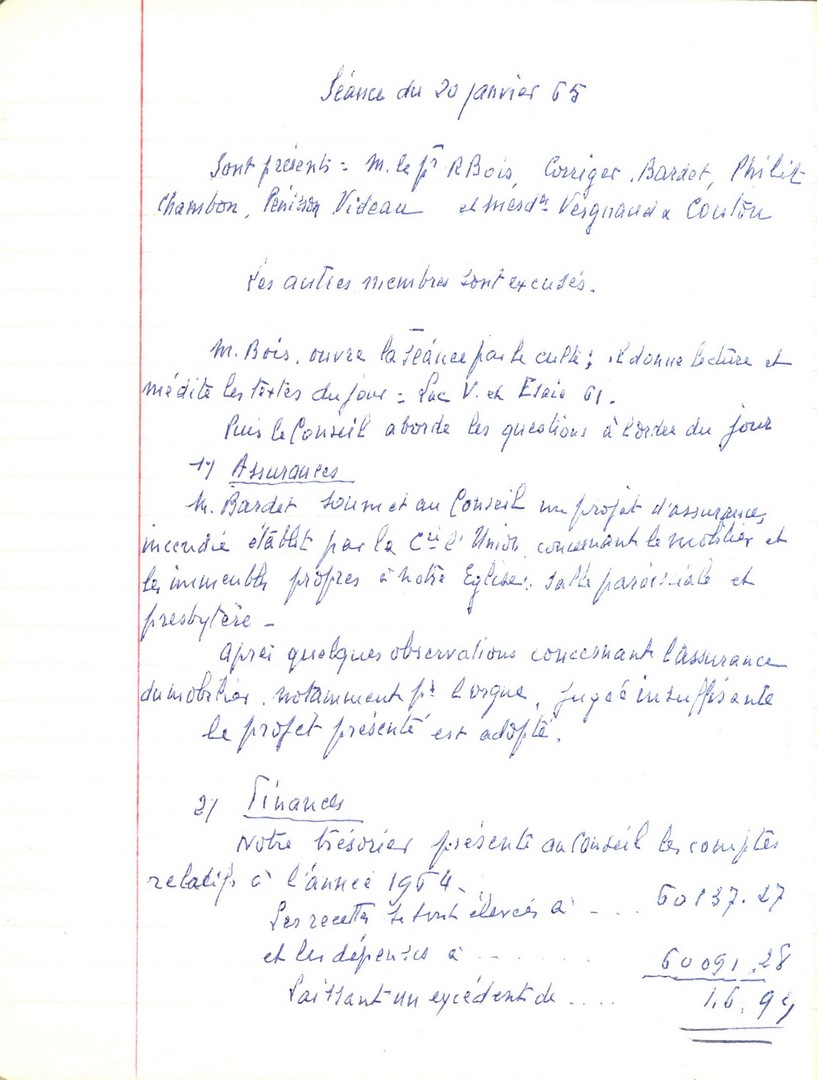 Séance du 20 janvier 65
Sont présents = M. le pr R Bois, Corriger, Bardet, Philit
Chambon, Pénisson Videau et mesd es Vergnaud & Coulon
Les autres membres sont excusés.
M. Bois, ouvre la séance par le culte ; il donne lecture et
médite les textes du jour = Luc V. et Esaie 61.
Puis le Conseil aborde les questions à l'ordre du jour
1) Assurances
M. Bardet soumet au Conseil un projet d'assurances,
incendie établit par la Cie l'Union, concernant le mobilier et
les immeubles propres à notre Eglise : salle paroissiale et
presbytère -
après quelques observations concernant l'assurance
du mobilier, notamment pr l'orgue, jugée insuffisante
le projet présenté est adopté.
2) Finances
Notre trésorier présente au Conseil les comptes
relatifs à l'année 1964.
Les recettes se sont élevées à - ... 60137.27
et les dépenses à ....... 60091.28
Laissant un excédent de ....